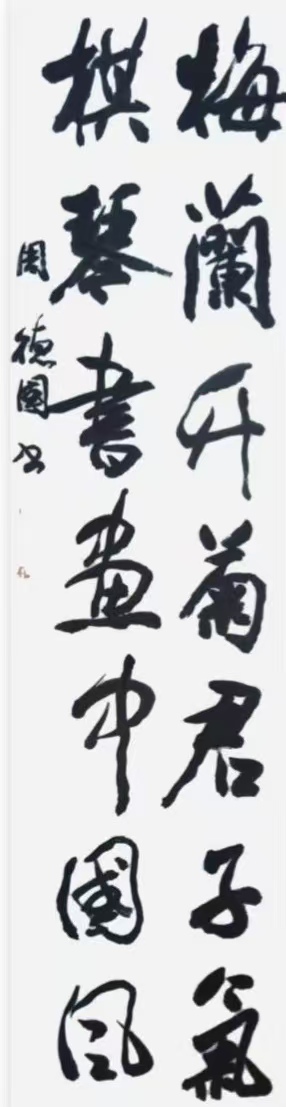 梅蘭竹菊君子氣
棋琴書畫中國風
周德國书